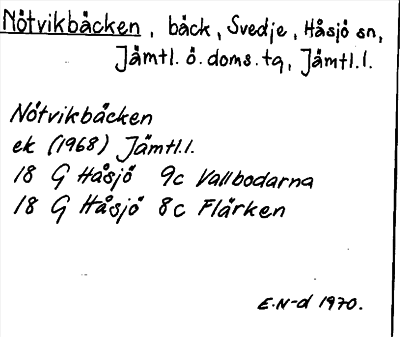 Nötvikbäcken, bäck, Svedje, Håsjö sn,
Jämtl. ö. doms. tg, Jämtl. l.
Nötvikbäcken
ek (1968) Jämtl. l.
18 G Håsjö 9c Vallbodarna
18 G Håsjö 8c Flärken
E.N-d 1970.